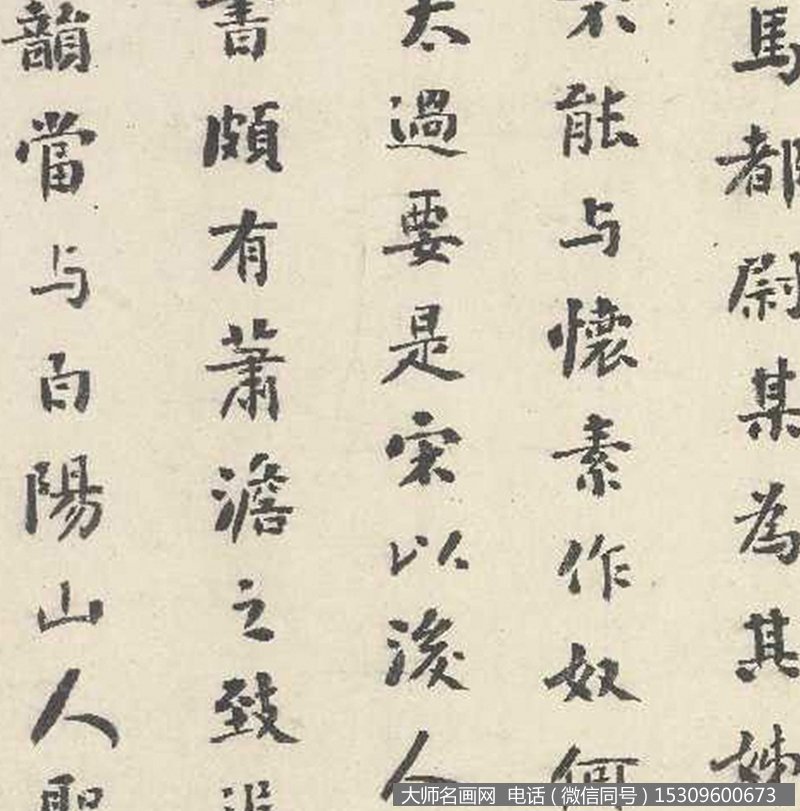 馬都尉某為其姊
不能与懷素作奴何
太過要是宋以後人
書頗有蕭澹之致
韻當与白陽山人
大师名画网 电话（微信同号）15309600673